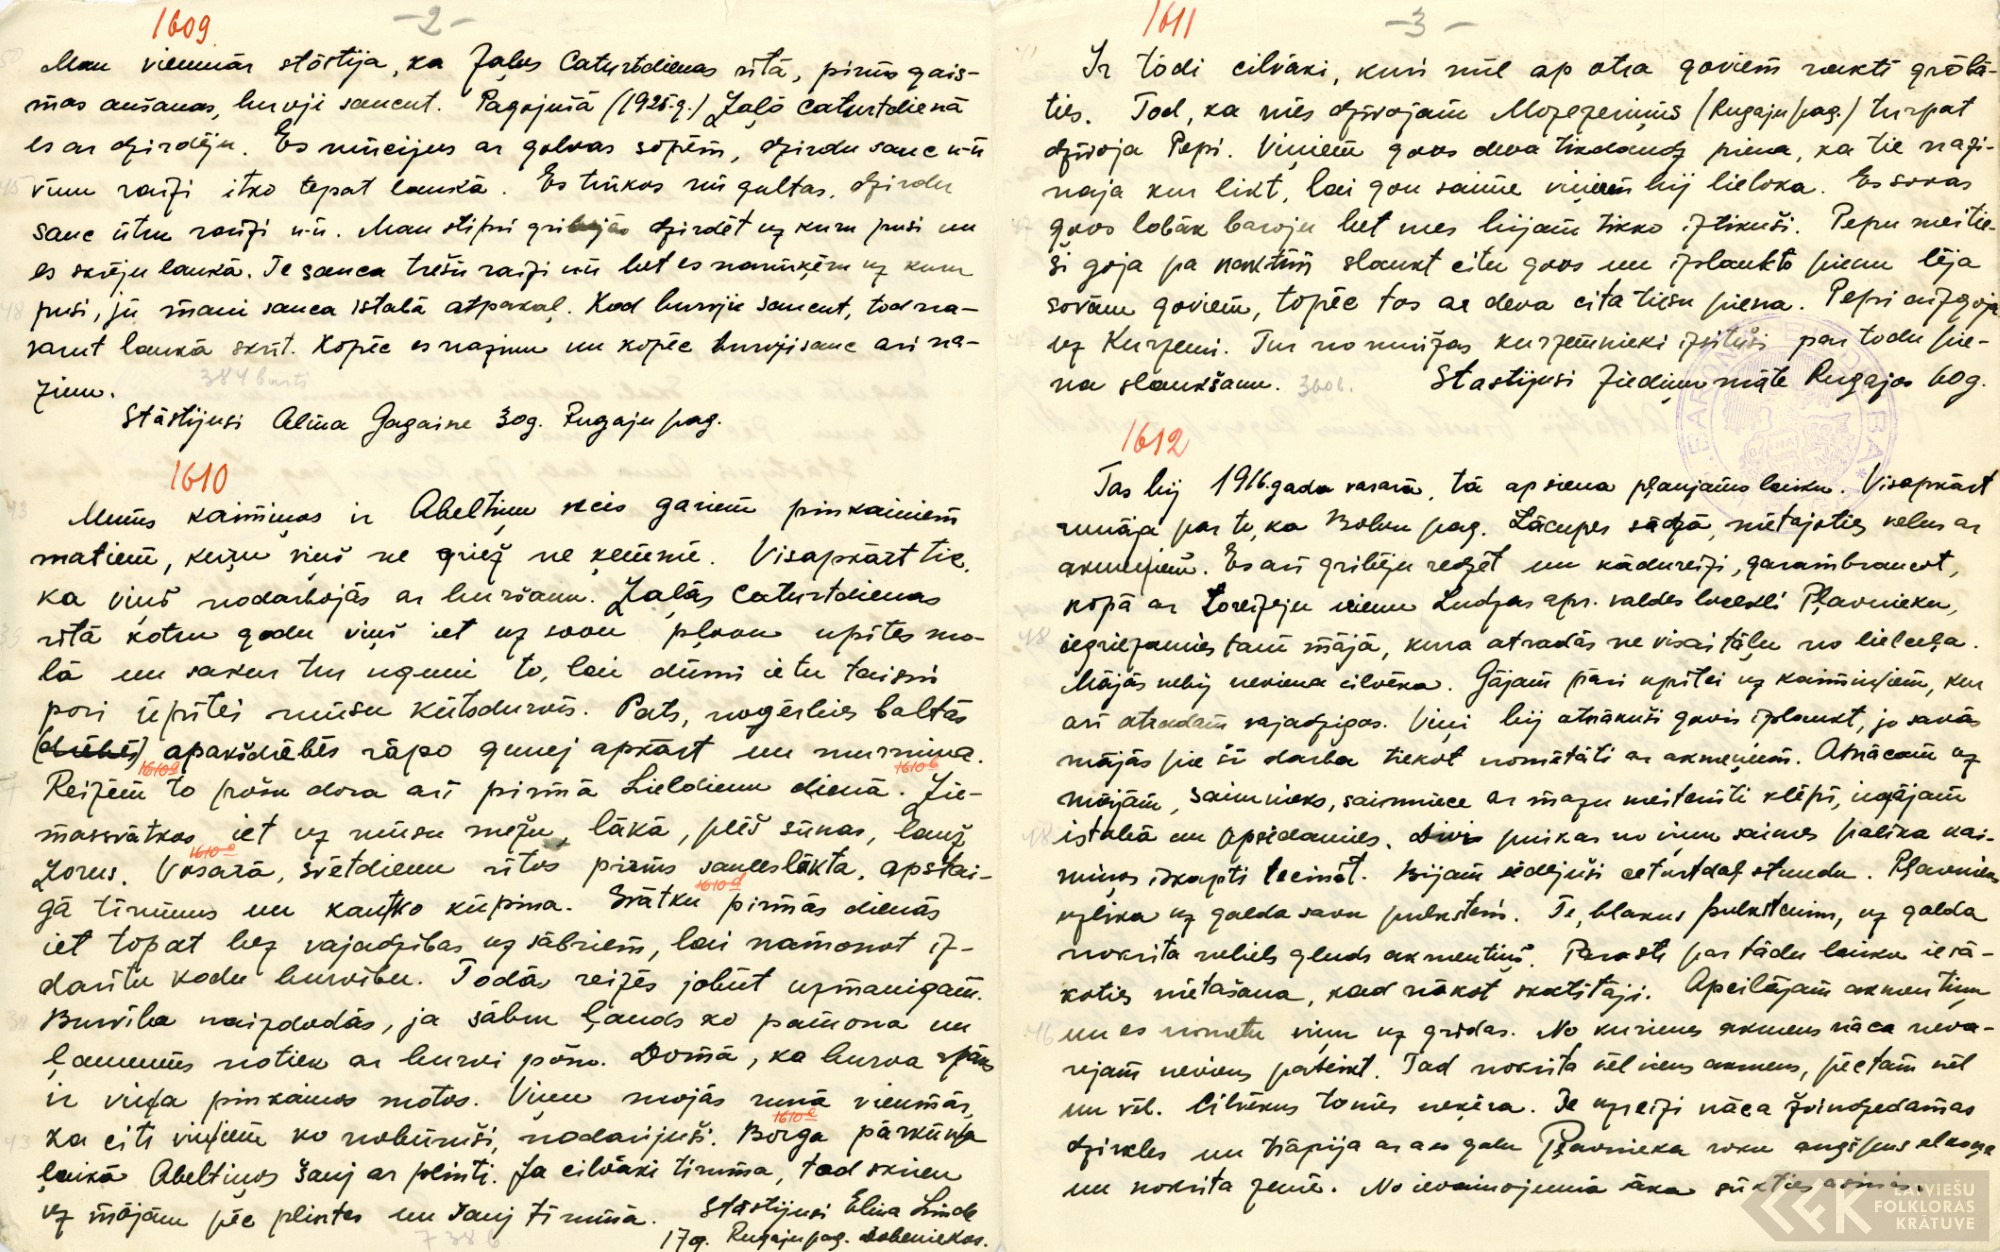 1609
-2-
Man vienmār stōstija, ka Zaļus Caturtdienas rītā, pirms gais-
mas aušanas, burvji saucut. Pagojušā (1925.g.) Zaļō caturtdienā
es ar dzirdēju. Es mūcijus ar golvas sōpēm, dzirdu sauc ū-ū
vīnu raizi itko tepat laukā. Es trūkos nu gultas, dzirdu
sauc ūtru raizi ū-ū. Man stipri gribējās dzirdēt uz kuru pusi un
es skrēju laukā. Te sauca trešū raizi ū-ū bet es namūķēru uz kuru
pusi, jū mani sauca istabā atpakaļ. Kod burvju saucut, tod na-
varut laukā skrīt. Kopēc es nazinu un kopēc burvji sauc arī na-
zinu.
384 burti
Stāstījusi Alīna Gagaine 30g. Rugaju pag.
1610
Mums kaimiņos ir Abeltiņu vecis gariem pinkainiem
matiem, kuŗu viņš ne griež ne ķemmē. Visapkārt tic,
ka viņš nodarbojās ar buršanu. Zaļās Caturtdienas
rītā kotru godu viņš iet uz sovu pļovu upītes mo-
lā un sakur tur uguni to, lai dūmi ietu taisni
pori ūpītei mūsu kūtsdurvīs. Pats, noģērbies baltās
(drēbēs) apakšdrēbēs rāpo gunej apkārt un murmina.
1610a
1610b
Reizēm to pošu dora arī pirmā Lieldienu dienā. Zie-
massvātkos iet uz mūsu mežu, lākā, plēš sūnas, lauž
1610c
zorus. Vosarā, svētdienu rītos pirms saulesläkta, apstai-
1610d
gā tīrumus un kautko kūpina. Svātku pirmās dienās
iet topat bez vajadzības uz sābriem, lai namonot iz-
darītu kodu burvību. Todās reizēs jobūt uzmanigam.
Burvība naizdodās, ja sābru ļauds ko pamona un
ļaunums notiek ar burvi pōšu. Domā, ka burva spāks
ir viņa pinkainos motos. Viņu mojās runā vienmār,
1610e
ka citi viņiem ko nobūruši, nodarijuši. Borga pārkūņa
laikā Abeltiņos šauj ar plinti. Ja cilvāki tīrumā, tad skrien
uz mōjām pēc plintes un šauj tīrumā. Stāstijusi Elina Linde
738b
17g. Rugaju pag. Dobeniekos.
1611
-3-
Ir todi cilvāki, kuri mīl ap otra goviem naktī grōbā-
ties. Tod, ka mēs dzīvojam Mozezerņus (Rugaju pag.) turpat
dzīvoja Pepi. Viņiem govs deva tikdaudz piena, ka tie nazi-
naja kur likt, lai gon saime viņiem bij lieloka. Es sovas
govs lobāk baroju bet mes bijam tikko iztikuši. Pepu meitie-
ši goja pa naktim slaukt citu govs un izslaukto pienu lēja
sovām goviem, topēc tos ar deva cita tiesu piena. Pepi aizgoja
uz Kurzemi. Tur no muižas kurzemnieki izsituši par todu pie-
na slaukšanu. 360b. Stastijusi Ziediņu māte Rugajos 60g.
1612
Tas bij 1916.gada vasarā, tā ap siena pļaujamo laiku. Visapkārt
runāja par to, ka Bolvu pag. Lācupes sādžā, mētajoties velns ar
akmeņiem. Es arī gribēju redzēt un kādureizi, garambraucot,
kopā ar toreizeju vienu Ludzas apr. valdes locekli Pļavnieku,
iegriezamies tam mājā, kura atradās ne visai tāļu no lielceļa.
Mājās nebij neviena cilvēka. Gājam pāri upītei uz kaimiņiem, kur
arī atradam vajadzigos. Viņi bij atnākuši govis izslaukt, jo savās
mājās pie šī darba tiekot nomētāti ar akmeņiem. Atnācam uz
mājām, saimnieks, saimniece ar mazu meitenīti klēpī, iegājam
istabā un apsēdamies. Divi puikas no viņu saimes palika kai-
miņos izkapti tecināt. Bijam sēdējuši ceturtdaļ stundu. Pļavnieks
uzlika uz galda savu pulksteni. Te, blakus pulkstenim, uz galda
nokrita neliels gluds akmentiņš. Parasti par tādu laiku iesā-
koties mētašana, kad nākot skatītāji. Apcilājam akmentiņu
un es nometu viņu uz grīdas. No kurienes akmens nāca neva-
rejam neviens pateikt. Tad nokrita vēl viens akmens, pēc tam vēl
un vēl. Cilvēkus tomēr neķēra. Te uzreizi nāca žvindzedamas
dzirkles un trāpija ar aso galu Pļavnieka roku augšpus elkoņa
un nokrita zemē. No ievainojuma sāka sūkties asinis.
LATVIEŠU
FOLKLORAS
KRĀTUVE